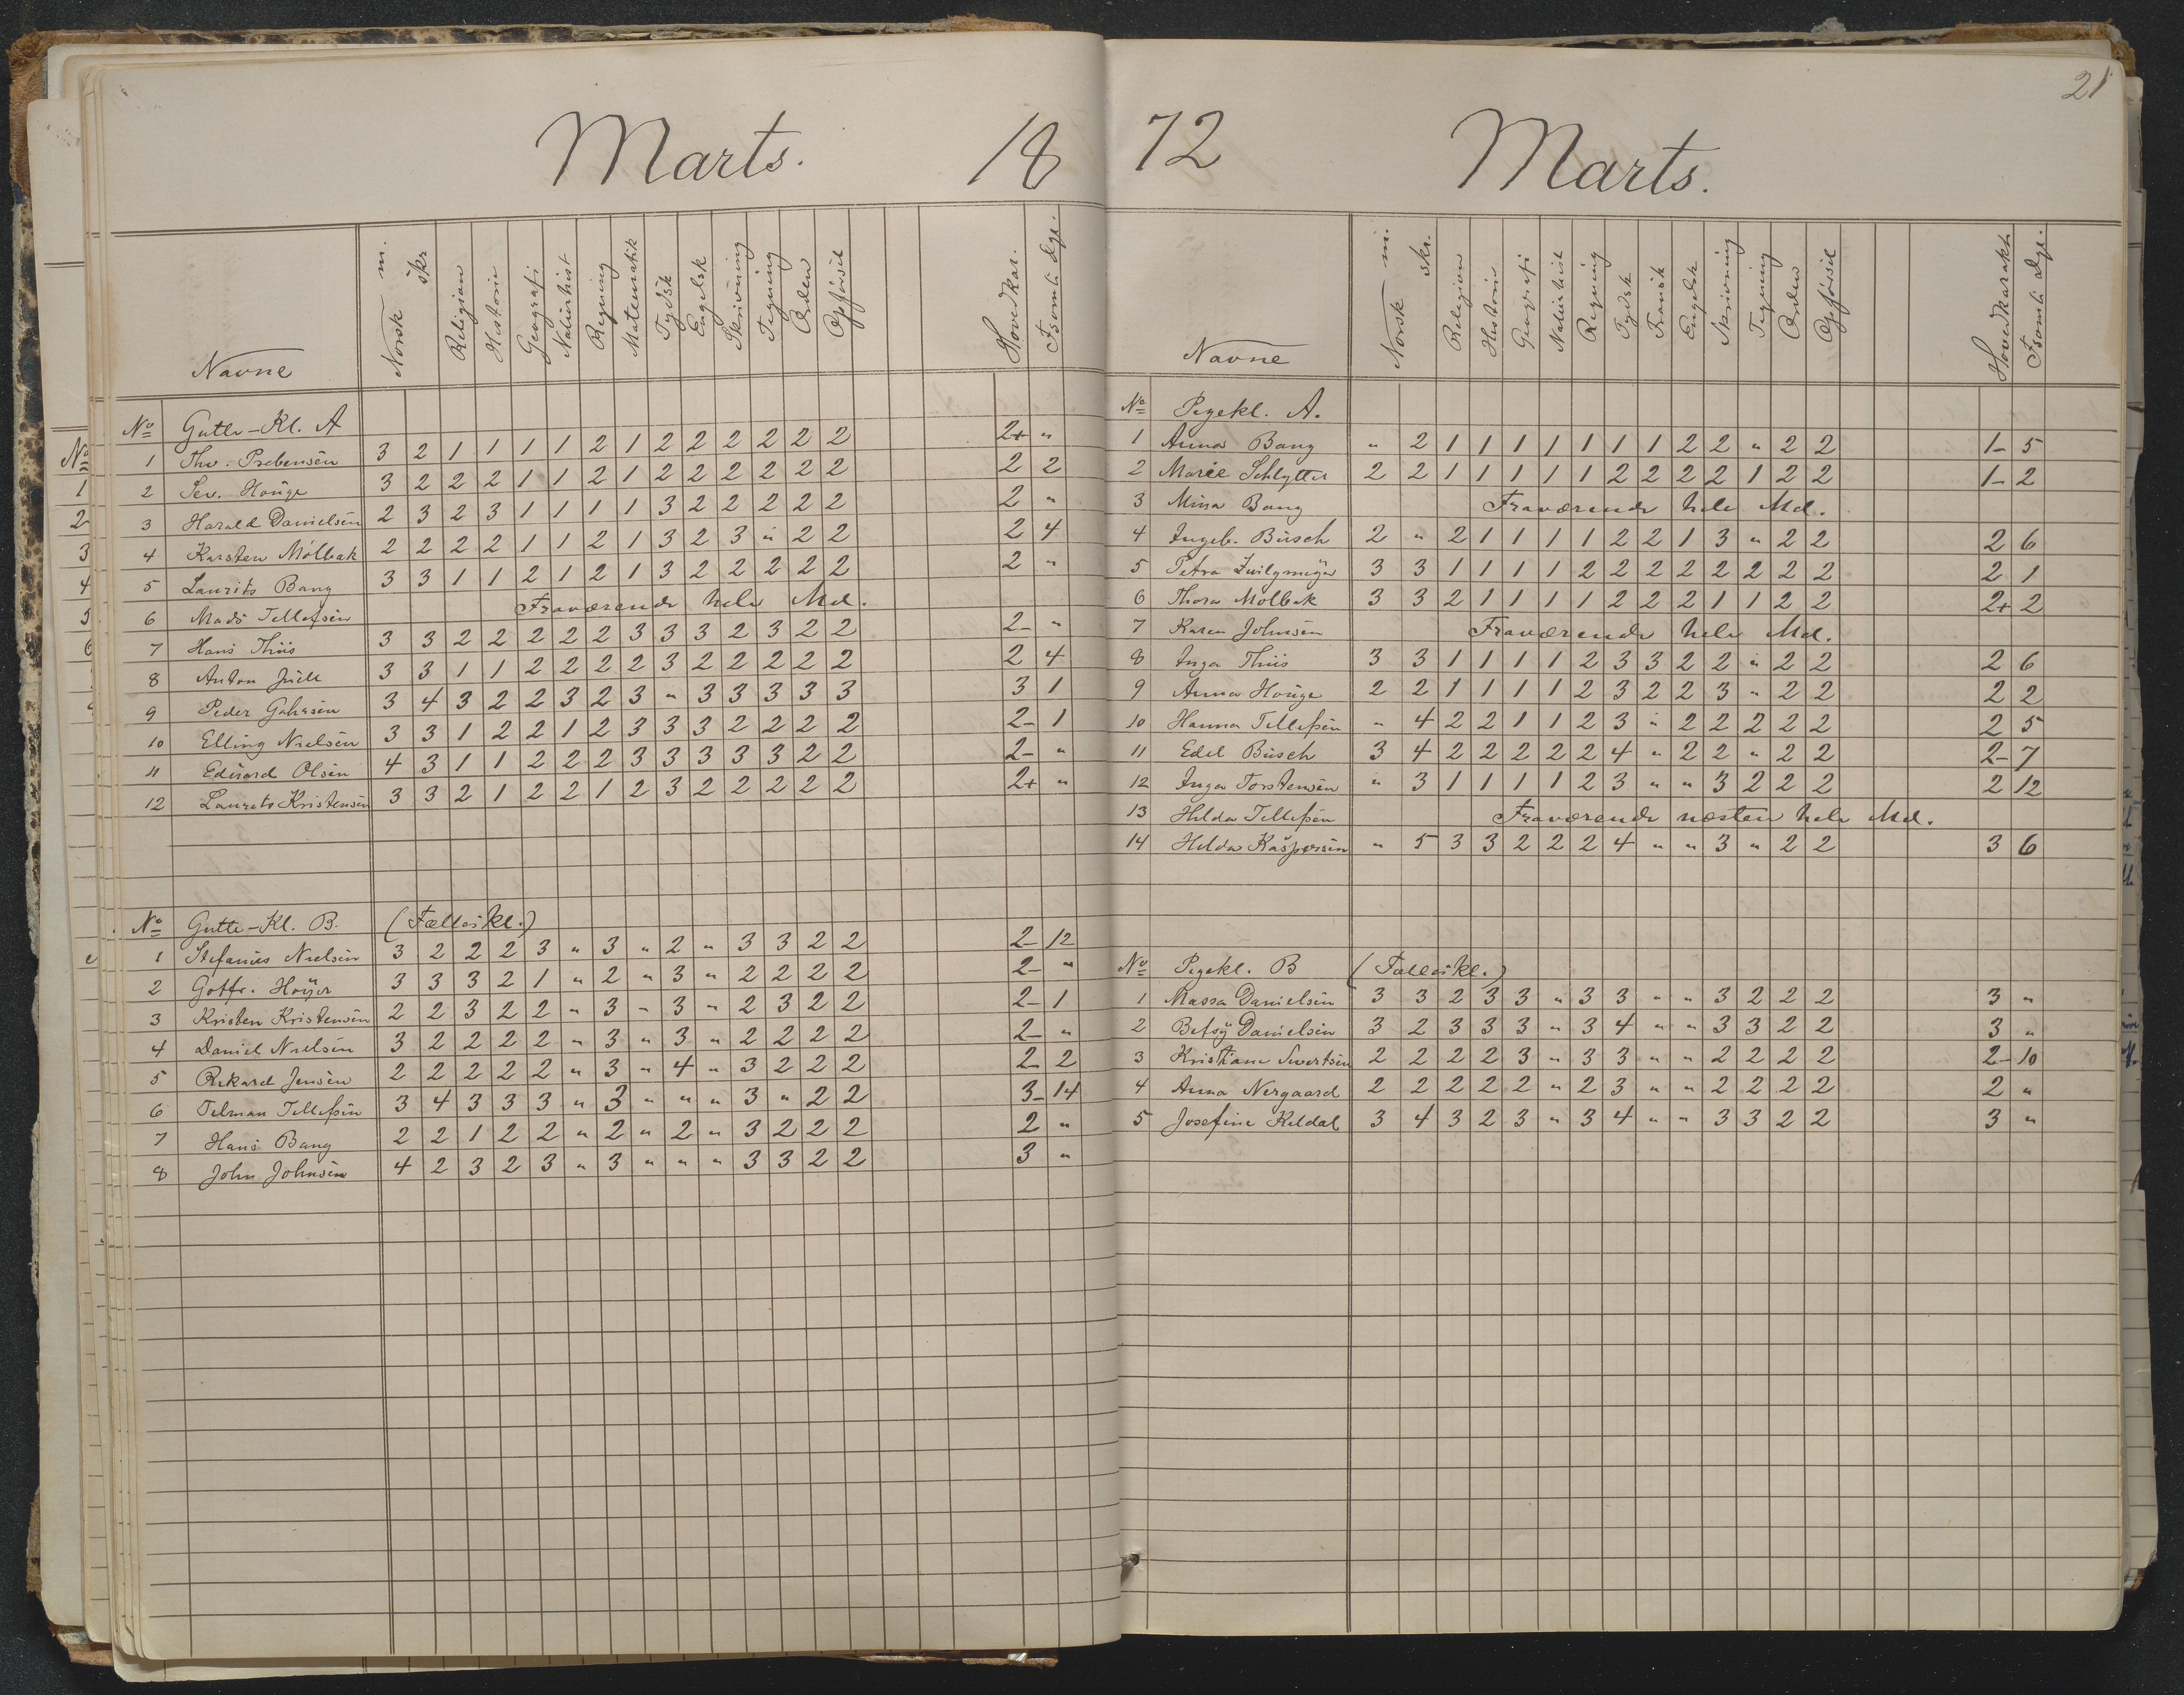 Marts. 18
Navne Norsk m. skr Religion Historie Geografi Naturhist Regning Matematik Tydsk Engelsk Skrivning Tegning Orden Opførsel Hovedkar. Fsømte dge.
No Gutte-Kl. A
1 Thv. Prebensen 3 2 1 1 1 1 2 1 2 2 2 2 2 2 2+ "
2 Sev. Houge 3 2 2 2 1 1 2 1 2 2 2 2 2 2 2 2
3 Harald Danielsen 2 3 2 3 1 1 1 1 3 2 2 2 2 2 2 "
4 Karsten Mølbak 2 2 2 2 1 1 2 1 3 2 3 " 2 2 2 4
5 Laurits Bang 3 3 1 1 2 1 2 1 3 2 2 2 2 2 2 "
6 Mads Tellefsen Fraværende hele Md.
7 Hans Thiis 3 3 2 2 2 2 2 3 3 3 2 3 2 2 2- "
8 Anton Juell 3 3 1 1 2 2 2 2 3 2 2 2 2 2 2 4
9 Peder 3 4 3 2 2 3 2 3 " 3 3 3 3 3 3 1
10 Elling Nielsen 3 3 1 2 2 1 2 3 3 3 2 2 2 2 2- 1
11 Edvard Olsen 4 3 1 1 2 2 2 3 3 3 3 3 2 2 2- "
12 Laurits Kristensen 3 3 2 1 2 2 1 2 3 2 2 2 2 2 2+ "
No Gutte-Kl. B. (Fælleskl.)
1 Stefanus Nielsen 3 2 2 2 3 " 3 " 2 " 3 3 2 2 2- 12
2 Gotfr. Høyer 3 3 3 2 1 " 2 " 3 " 2 2 2 2 2- "
3 Kristen Kristensen 2 2 3 2 2 " 3 " 3 " 2 3 2 2 2- 1
4 Daniel Nielsen 3 2 2 2 2 " 3 " 3 " 2 2 2 2 2- "
5 Rikard Jensen 2 2 2 2 2 " 3 " 4 " 3 2 2 2 2- 2
6 Telman Tellefsen 3 4 3 3 3 " 3 " " " 3 " 2 2 3- 14
7 Hans Bang 2 2 1 2 2 " 2 " 2 " 3 2 2 2 2 "
8 John Johnsen 4 2 3 2 3 " 3 " " " 3 3 2 2 3 "
21
72 Marts.
Navne Norsk m. skr. Religion Historie Geografi Naturhist Regning Tydsk Fransk Engelsk Skrivning Tegning Orden Opførsel Hovedkarakt. Fsømte dge.
No Pigekl. A.
1 Anna Bang " 2 1 1 1 1 1 1 1 2 2 " 2 2 1- 5
2 Marie Schlytter 2 2 1 1 1 1 1 2 2 2 2 1 2 2 1- 2
3 Mina Bang Fraværende hele Md.
4 Ingeb. Busch 2 " 2 1 1 1 1 2 2 1 3 " 2 2 2 6
5 Petra Zwilgmeyer 3 3 1 1 1 1 2 2 2 2 2 2 2 2 2 1
6 Thora Mølbak 3 3 2 1 1 1 1 2 2 2 1 1 2 2 2+ 2
7 Karen Johnsen Fraværende hele Md.
8 Inga Thiis 3 3 1 1 1 1 2 3 3 2 2 " 2 2 2 6
9 Anna Houge 2 2 1 1 1 1 2 3 2 2 3 " 2 2 2 2
10 Hanna Tellefsen " 4 2 2 1 1 2 3 " 2 2 2 2 2 2 5
11 Edel Busch 3 4 2 2 2 2 2 4 " 2 2 " 2 2 2- 7
12 Inga Torstensen " 3 1 1 1 1 2 3 " " 3 2 2 2 2 12
13 Hilda Tellefsen Fraværende næsten hele Md.
14 Hilda Kaspersen " 5 3 3 2 2 2 4 " " 3 " 2 2 3 6
No Pigekl. B (Fælleskl.)
1 Massa Danielsen 3 3 2 3 3 " 3 3 " " 3 2 2 2 3 "
2 Betsy Danielsen 3 2 3 3 3 " 3 4 " " 3 3 2 2 3 "
3 Kristiane Sivertsen 2 2 2 2 3 " 3 3 " " 2 2 2 2 2- 10
4 Anna Nergaard 2 2 2 2 2 " 2 3 " " 2 2 2 2 2 "
5 Josefine Kildal 3 4 3 2 3 " 3 4 " " 3 3 2 2 3 "